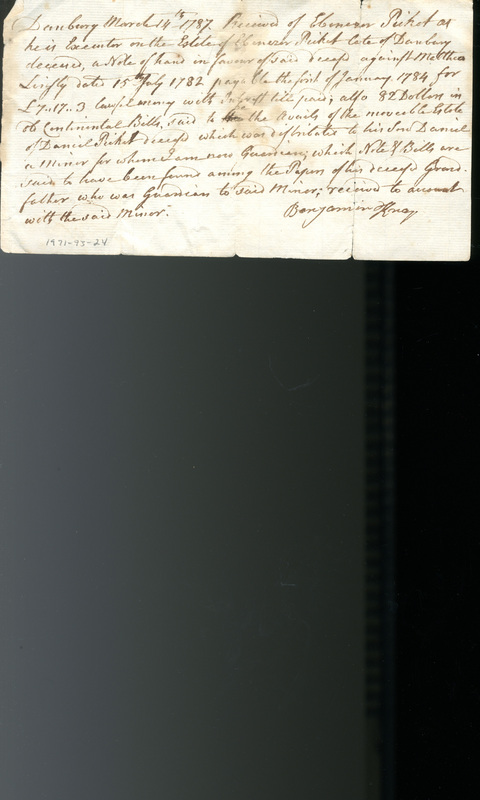 Danbury March 14th 1787. Received of Ebenezer Picket as
he is Executor on the Estate of Ebenezer Picket late of Danbury
deceased, a Note of hand in favour of said deceasd against Matthew
dated 15th July 1782 payable the first of January 1784, for
£7..17..3 lawful money with Interest till paid; also 82 Dollars in
Continental Bills, said to be the Avails of the moveable Estate
of Daniel Picket deceasd which was distributed to his Son Daniel
a Minor for whome I am now Guardian; which Note & Bills are
said to have been found among the Papers of his deceasd Grand-
father who was Guardian to said Minor; received to account
with the said Minor.
Benjamin
1971-93-24